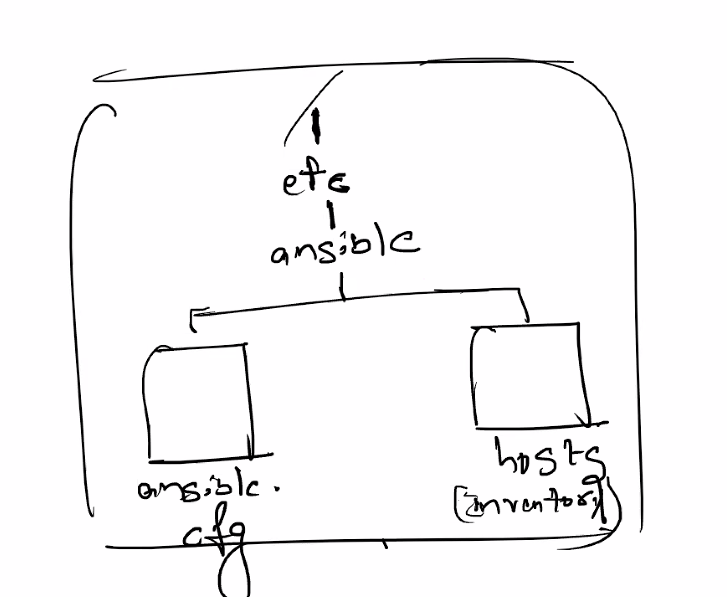 /
etc
ansible
ansible.
cfg
hosts
(inventory)